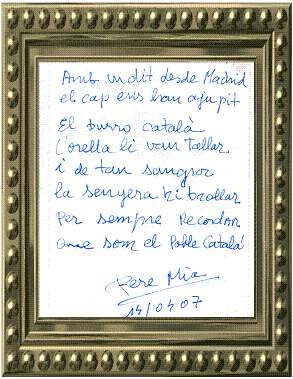 Amb un dit desde Madrid
el cap ens han ajupit
El burro català
l'orella li van Tallar
i de tan sangrar
la senyera hi brollar
Per sempre Recordar
que som el Poble Català
Pere Mia
14/04/07